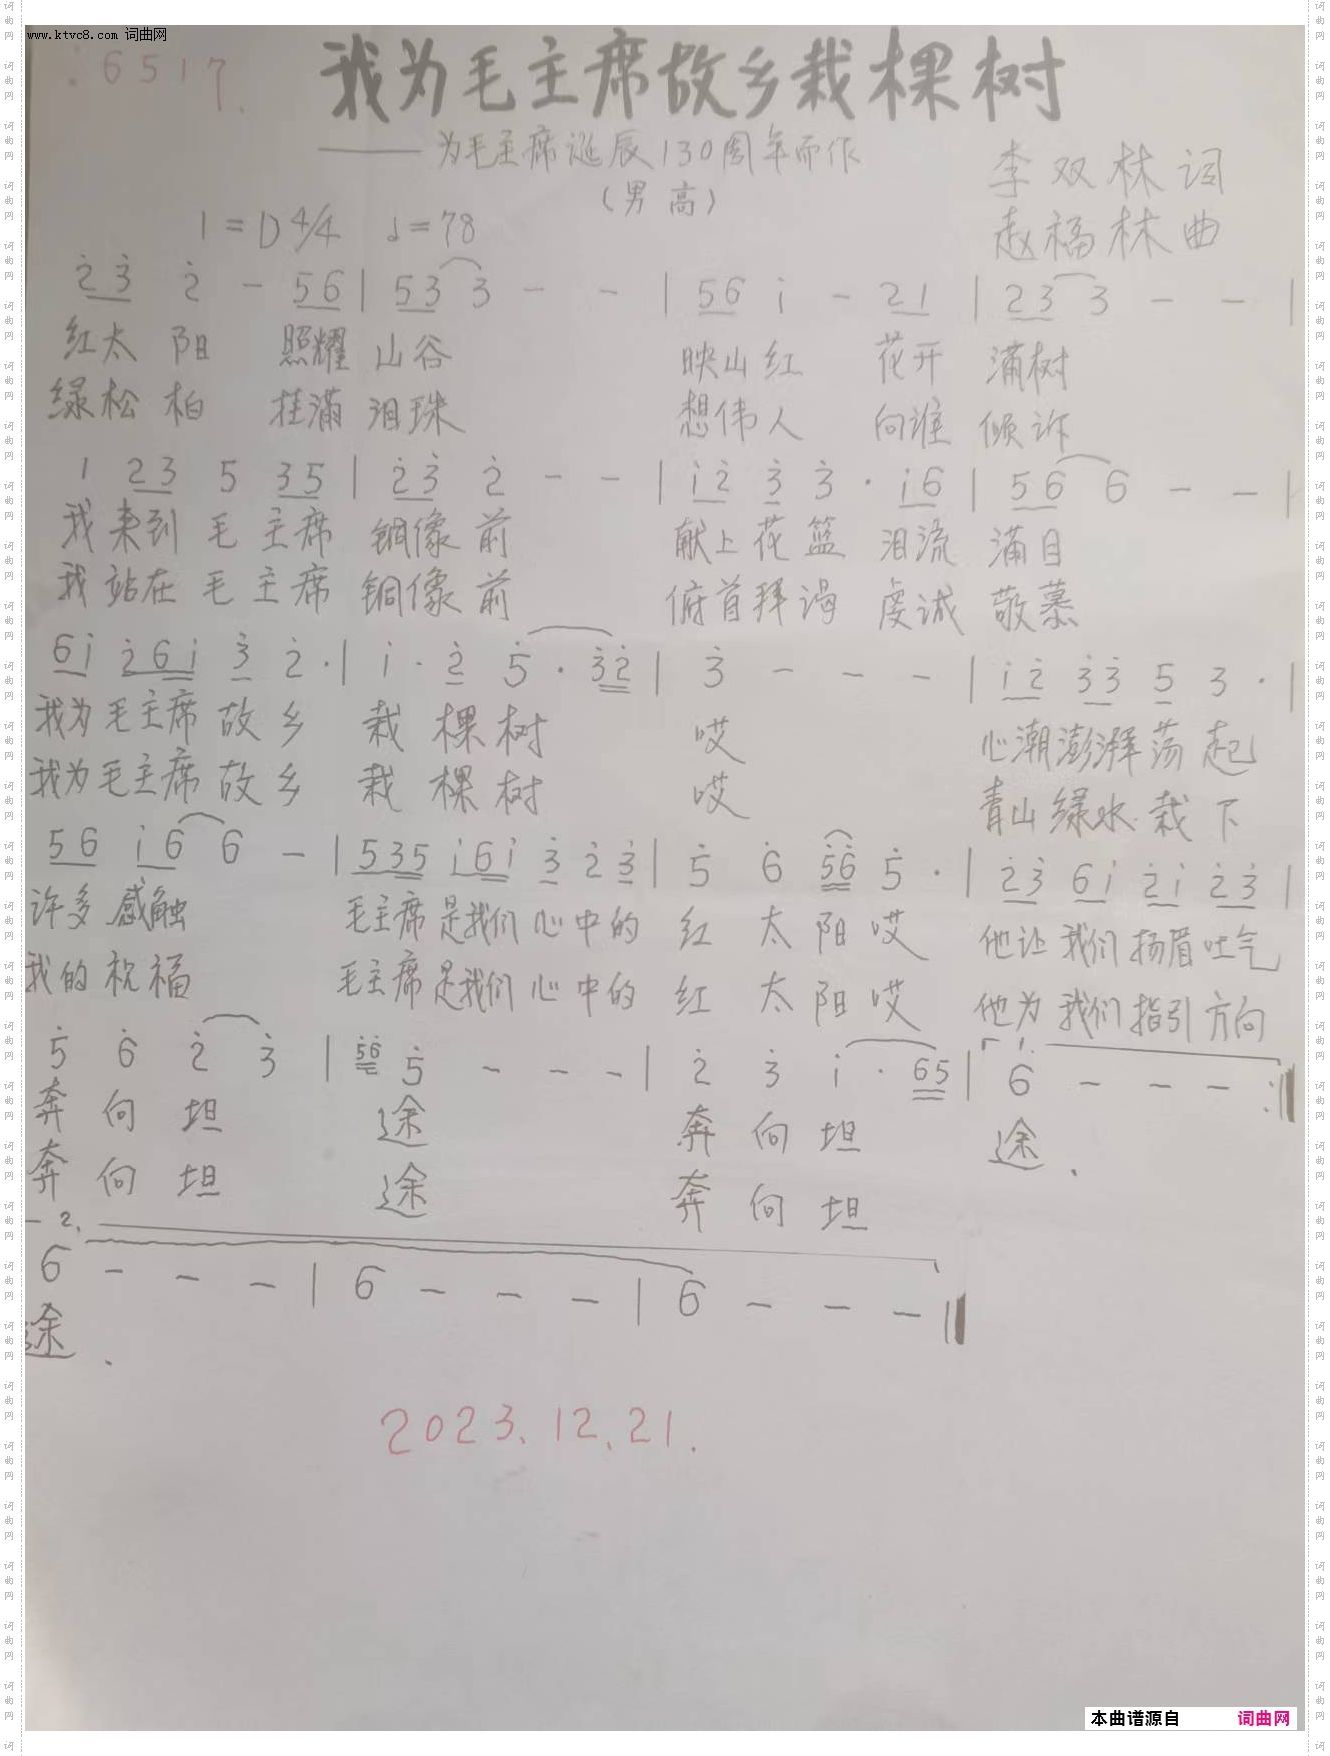 www.ktvc8.com 词曲网
:6517.
我为毛主席故乡栽棵树
——为毛主席诞辰130周年而作
(男高)
李双林词
赵福林曲
1=D4/4 ♩=78
2̇3̇ 2̇ - 56 | 53 3 - - | 56 i - 21 | 23 3 - - |
红太阳 照耀山谷 映山红 花开 满树
绿松柏 挂满泪珠 想伟人 向谁 倾诉
1 23 5 35 | 2̇3̇ 2̇ - - | i2̇ 3̇ 3̇ · i6 | 56 6 - - |
我来到毛主席铜像前 献上花篮 泪流 满目
我站在毛主席铜像前 俯首拜谒 虔诚 敬慕
6i 2̇6i 3̇ 2̇ · | i · 2̇ 5̇ · 3̇2̇ | 3̇ - - - | i2̇ 3̇3̇ 5̇ 3 · |
我为毛主席故乡 栽棵树 哎 心潮澎湃荡起
我为毛主席故乡 栽棵树 哎 青山绿水栽下
56 i6 6 - | 535 i6i 3̇ 2̇ 3̇ | 5̇ 6̇ 5̇6̇ 5̇ · | 2̇3̇ 6i 2̇i 2̇3̇ |
许多感触 毛主席是我们心中的 红太阳哎 他让我们扬眉吐气
我的祝福 毛主席是我们心中的 红太阳哎 他为我们指引方向
5̇ 6̇ 2̇ 3̇ | 5̇6̇ 5̇ - - - | 2̇ 3̇ i · 65 | 1. 6 - - - :‖
奔向坦 途 奔向坦 途.
奔向坦 途 奔向坦
2.
6 - - - | 6 - - - | 6 - - - ‖
途.
2023.12.21.
本曲谱源自 词曲网